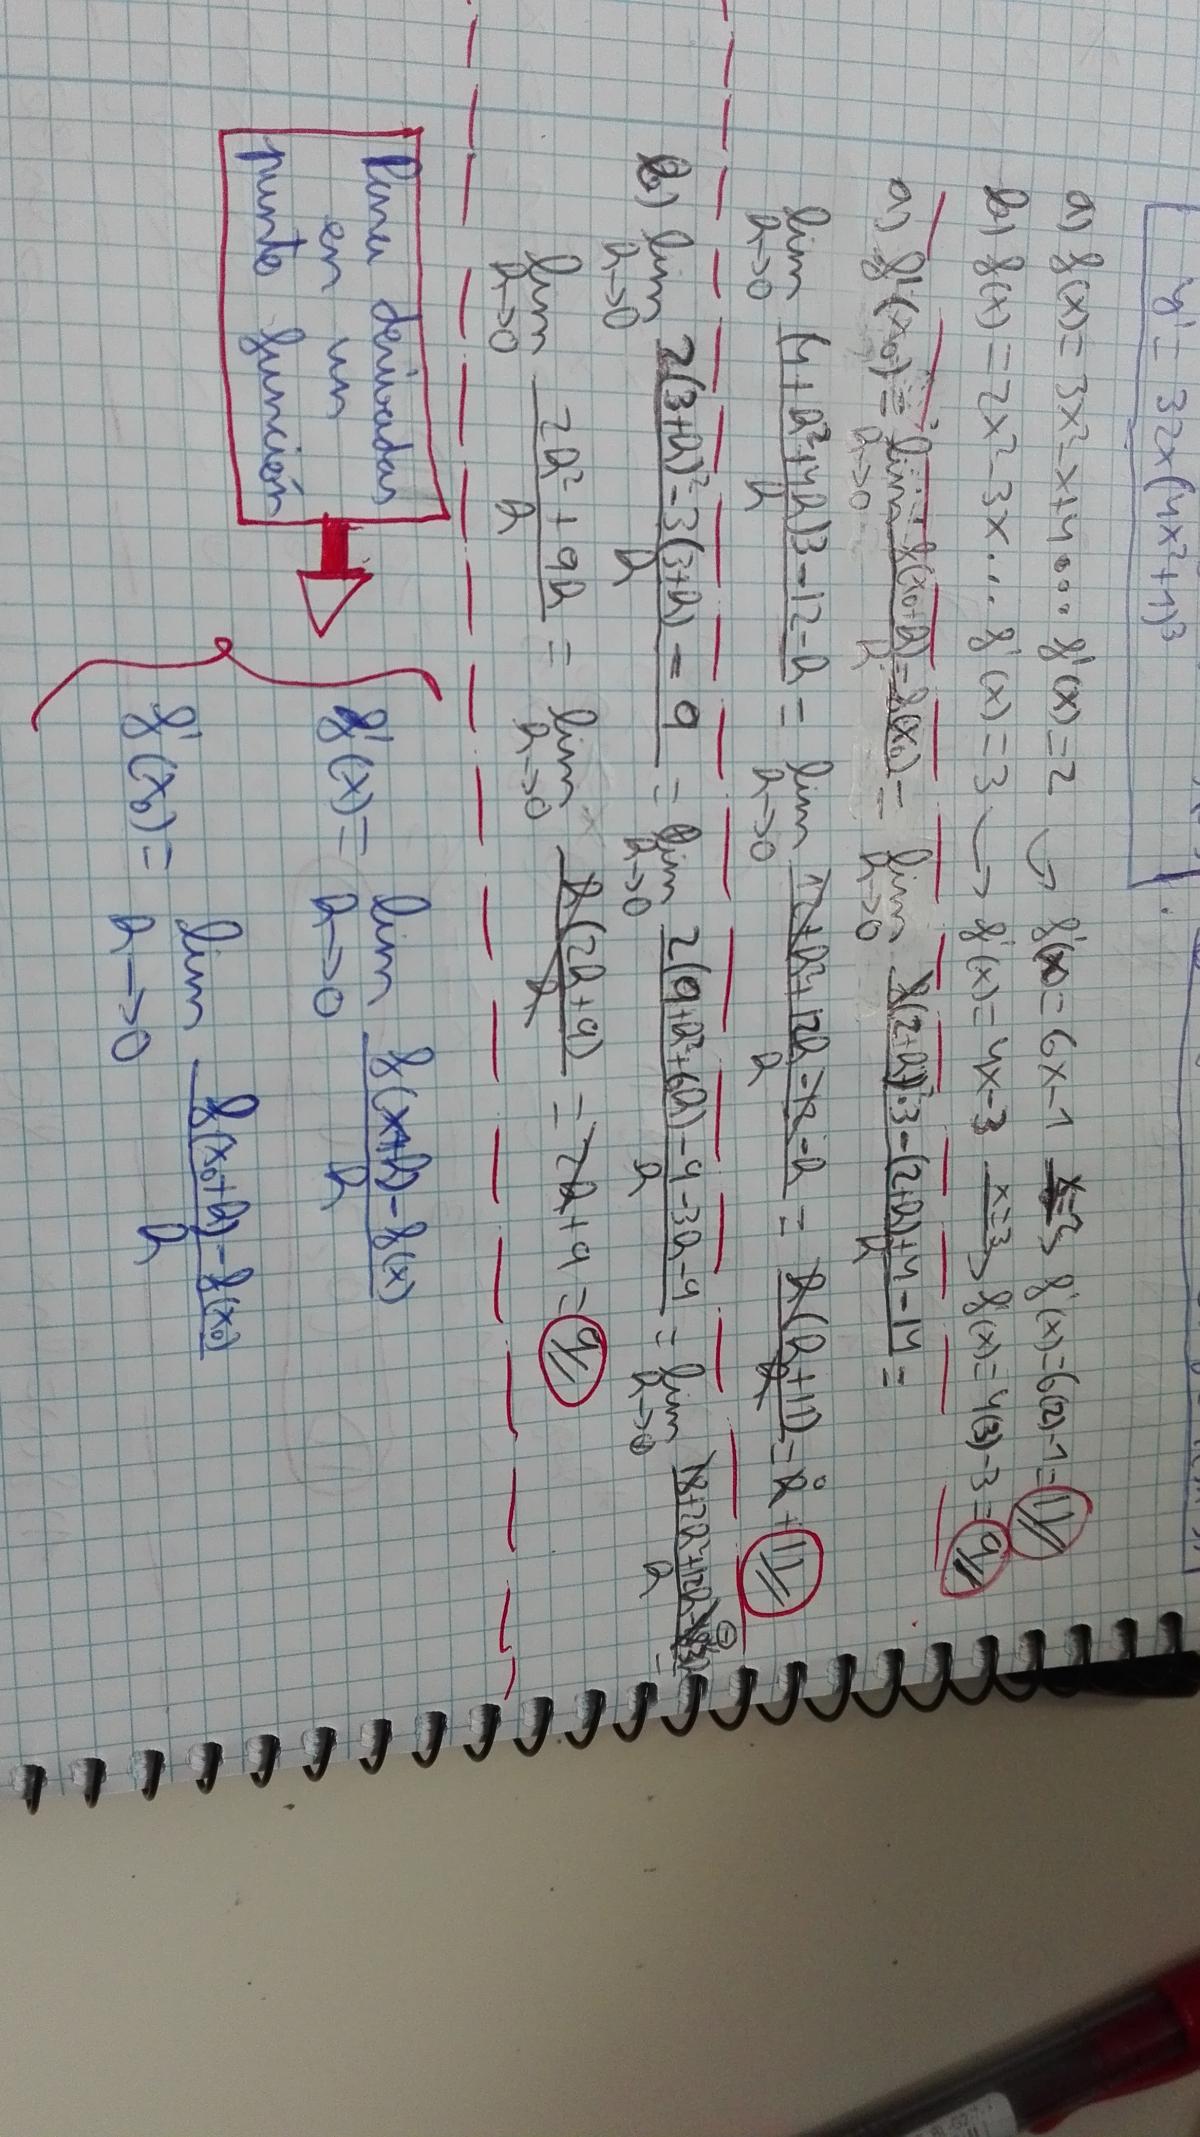 y' = 32x(4x²+1)³
a) f(x) = 3x²-x+4... f'(x)=2 → f'(x)= 6x-1 x=2 f'(x)=6(2)-1=11
b) f(x) = 2x²-3x... f'(x)=3 → f'(x)= 4x-3 x=3 f'(x)=4(3)-3=9
a) f'(x₀) = lim h→0 f(x₀+h)-f(x₀) / h = lim h→0 (2+h)²·3-(2+h)+4-14 / h =
lim h→0 (4+h²+4h)3-12-h / h = lim h→0 12+h²+12h-12-h / h = h(h+11) / h = h+11
b) lim h→0 2(3+h)²-3(3+h)=9 / h = lim h→0 2(9+h²+6h)-9-3h-9 / h = lim h→0 18+2h²+12h-18-3h / h =
lim h→0 2h²+9h / h = lim h→0 h(2h+9) / h = 2h+9 = 9
Para derivadas
en un
punto función
f'(x)= lim h→0 f(x+h)-f(x) / h
f'(x₀)= lim h→0 f(x₀+h)-f(x₀) / h